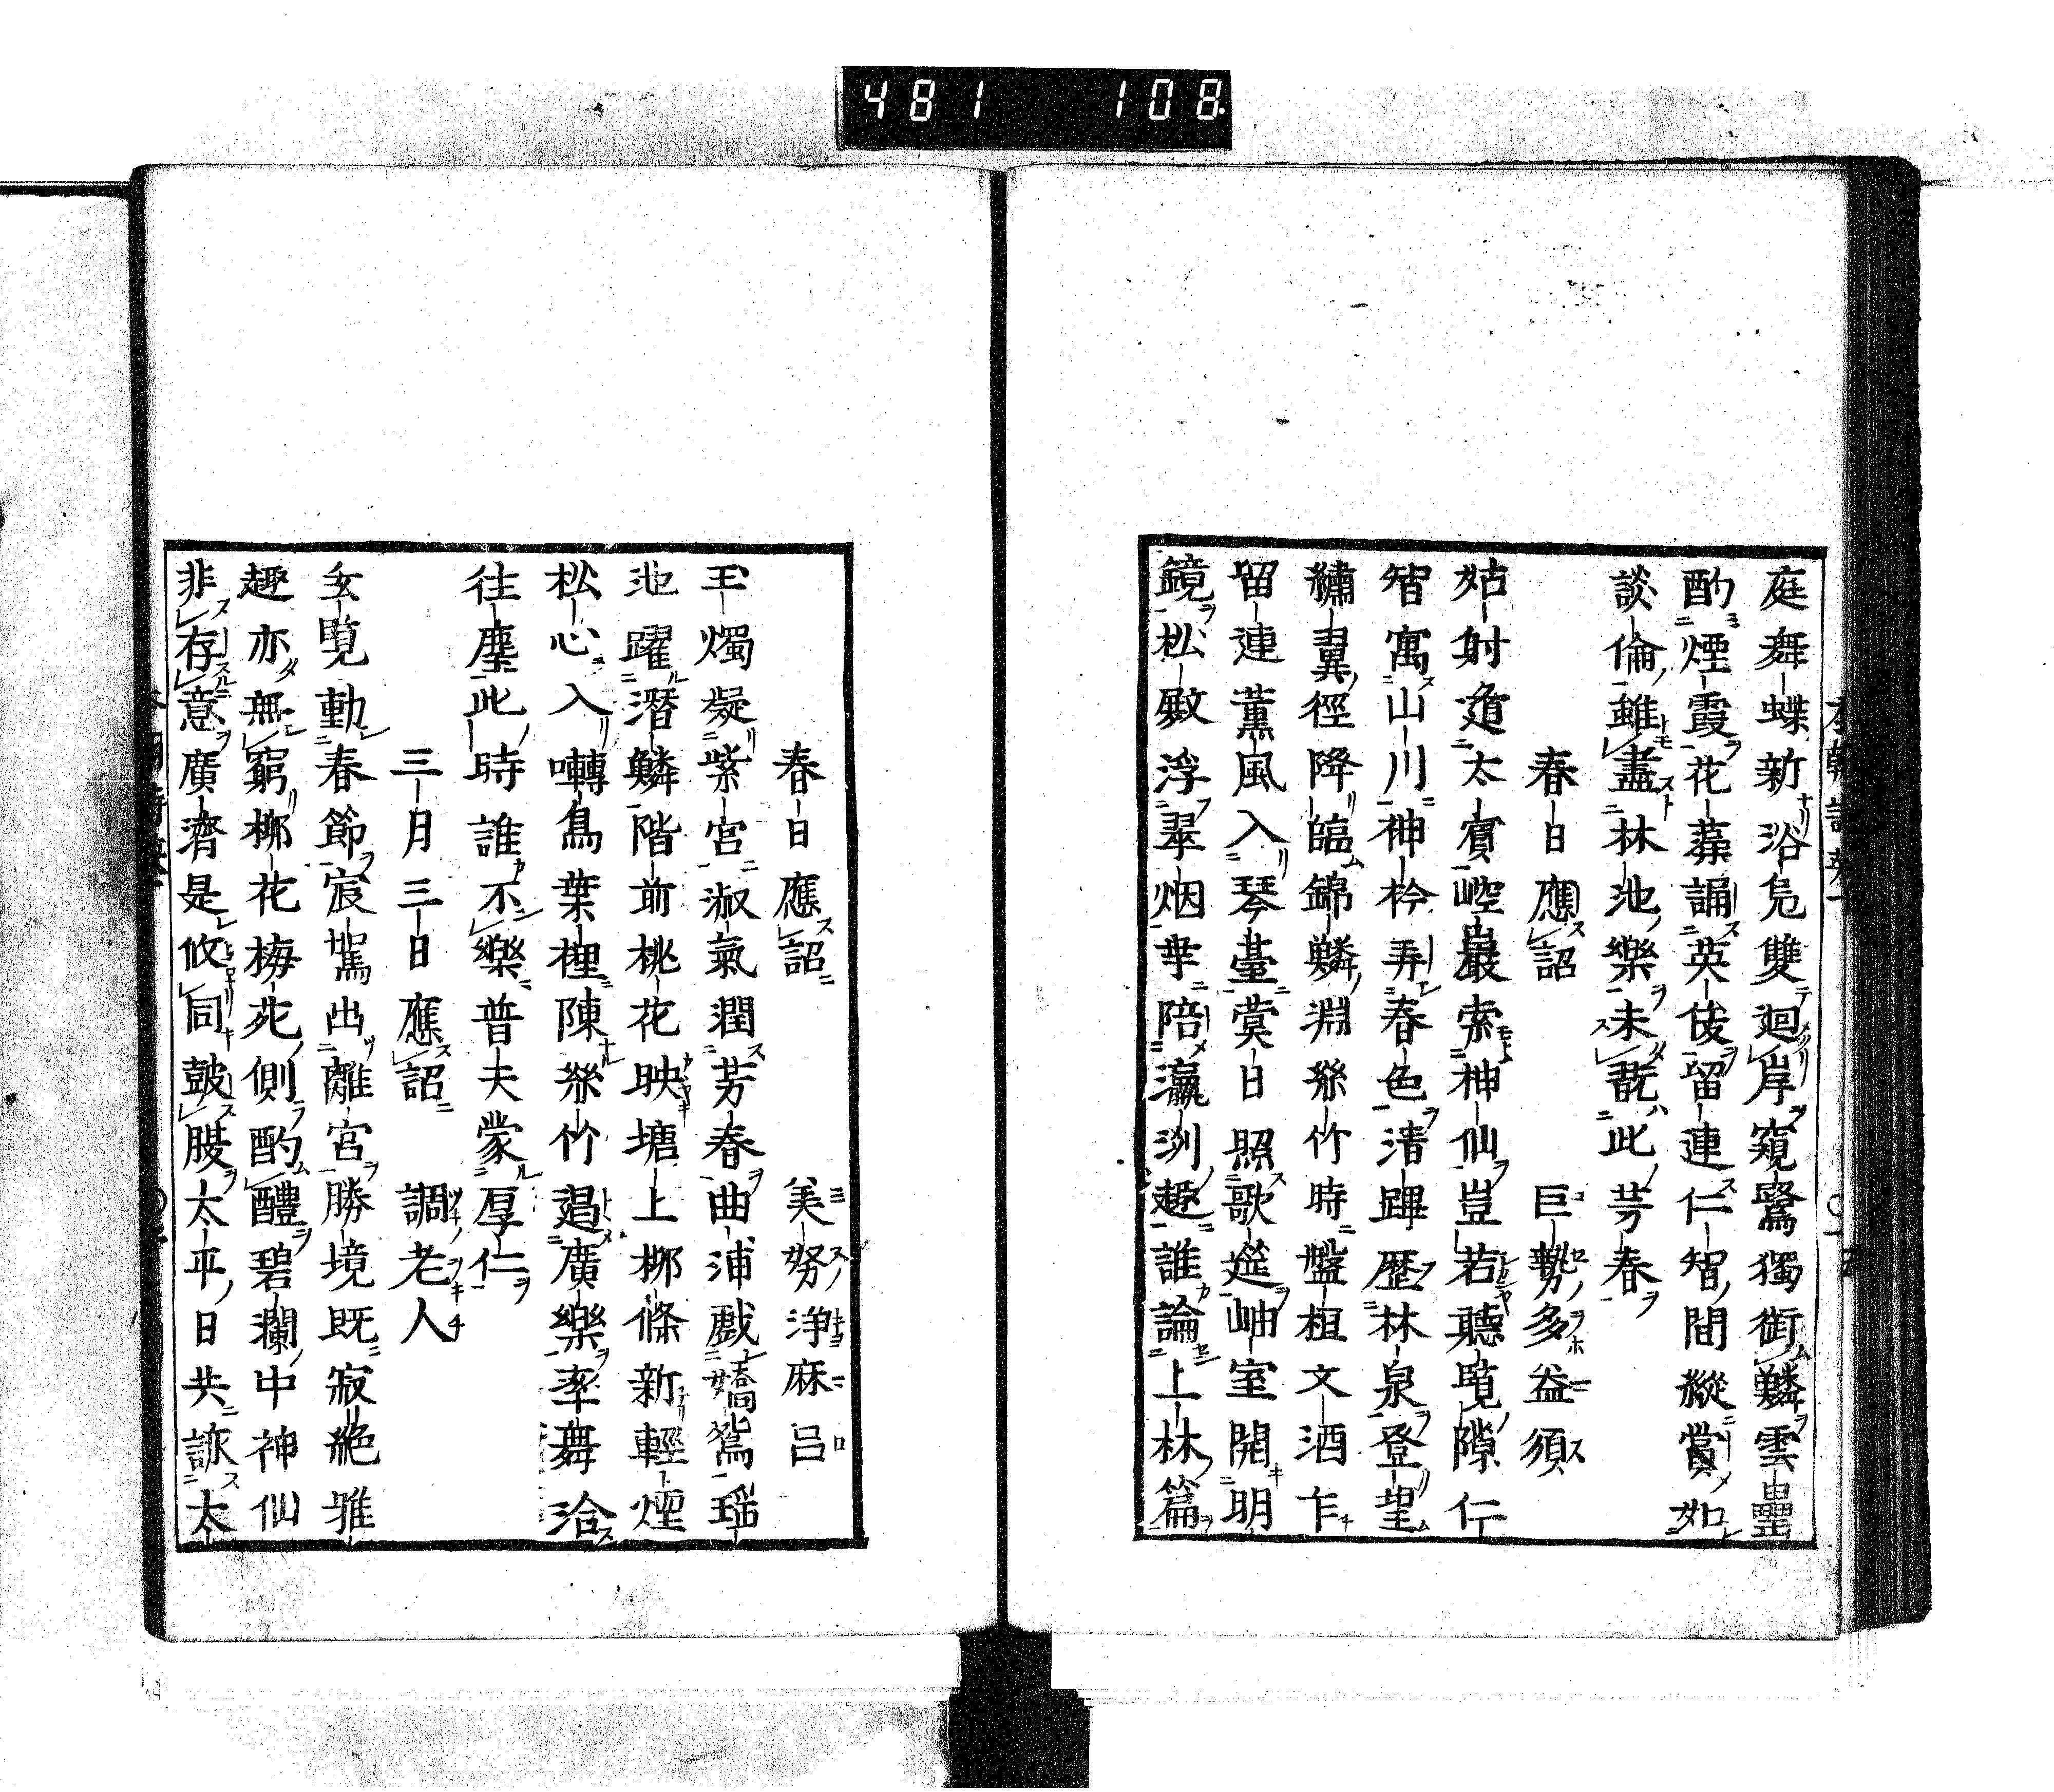 481 108
庭舞蝶新浴鳬雙廻岸窺鷺獨銜鱗雲罍
酌煙霞花藻誦英俊留連仁智間縱賞如
談倫雖盡林池樂未翫此芳春
春日應詔 巨勢多益須
姑射遁太賓崆巖索神仙豈若聽覽隙仁
智寓山川神衿弄春色清蹕歷林泉登望
繡翼徑降臨錦鱗淵絲竹時盤桓文酒乍
留連薫風入琴臺蓂日照歌筵岫室開明
鏡松殿浮翠烟幸陪瀛洲趣誰論上林篇
春日應詔 美努浄麻呂
玉燭凝紫宮淑氣潤芳春曲浦戲嬌鴛瑶
池躍潛鱗階前桃花映塘上柳條新輕煙
松心入囀鳥葉裡陳絲竹遏廣樂率舞洽
往塵此時誰不樂普天蒙厚仁
三月三日應詔 調老人
玄覽動春節宸駕出離宮勝境既寂絶雅
趣亦無窮柳花梅苑側酌醴碧瀾中神仙
非存意廣濟是攸同鼓腹太平日共詠太